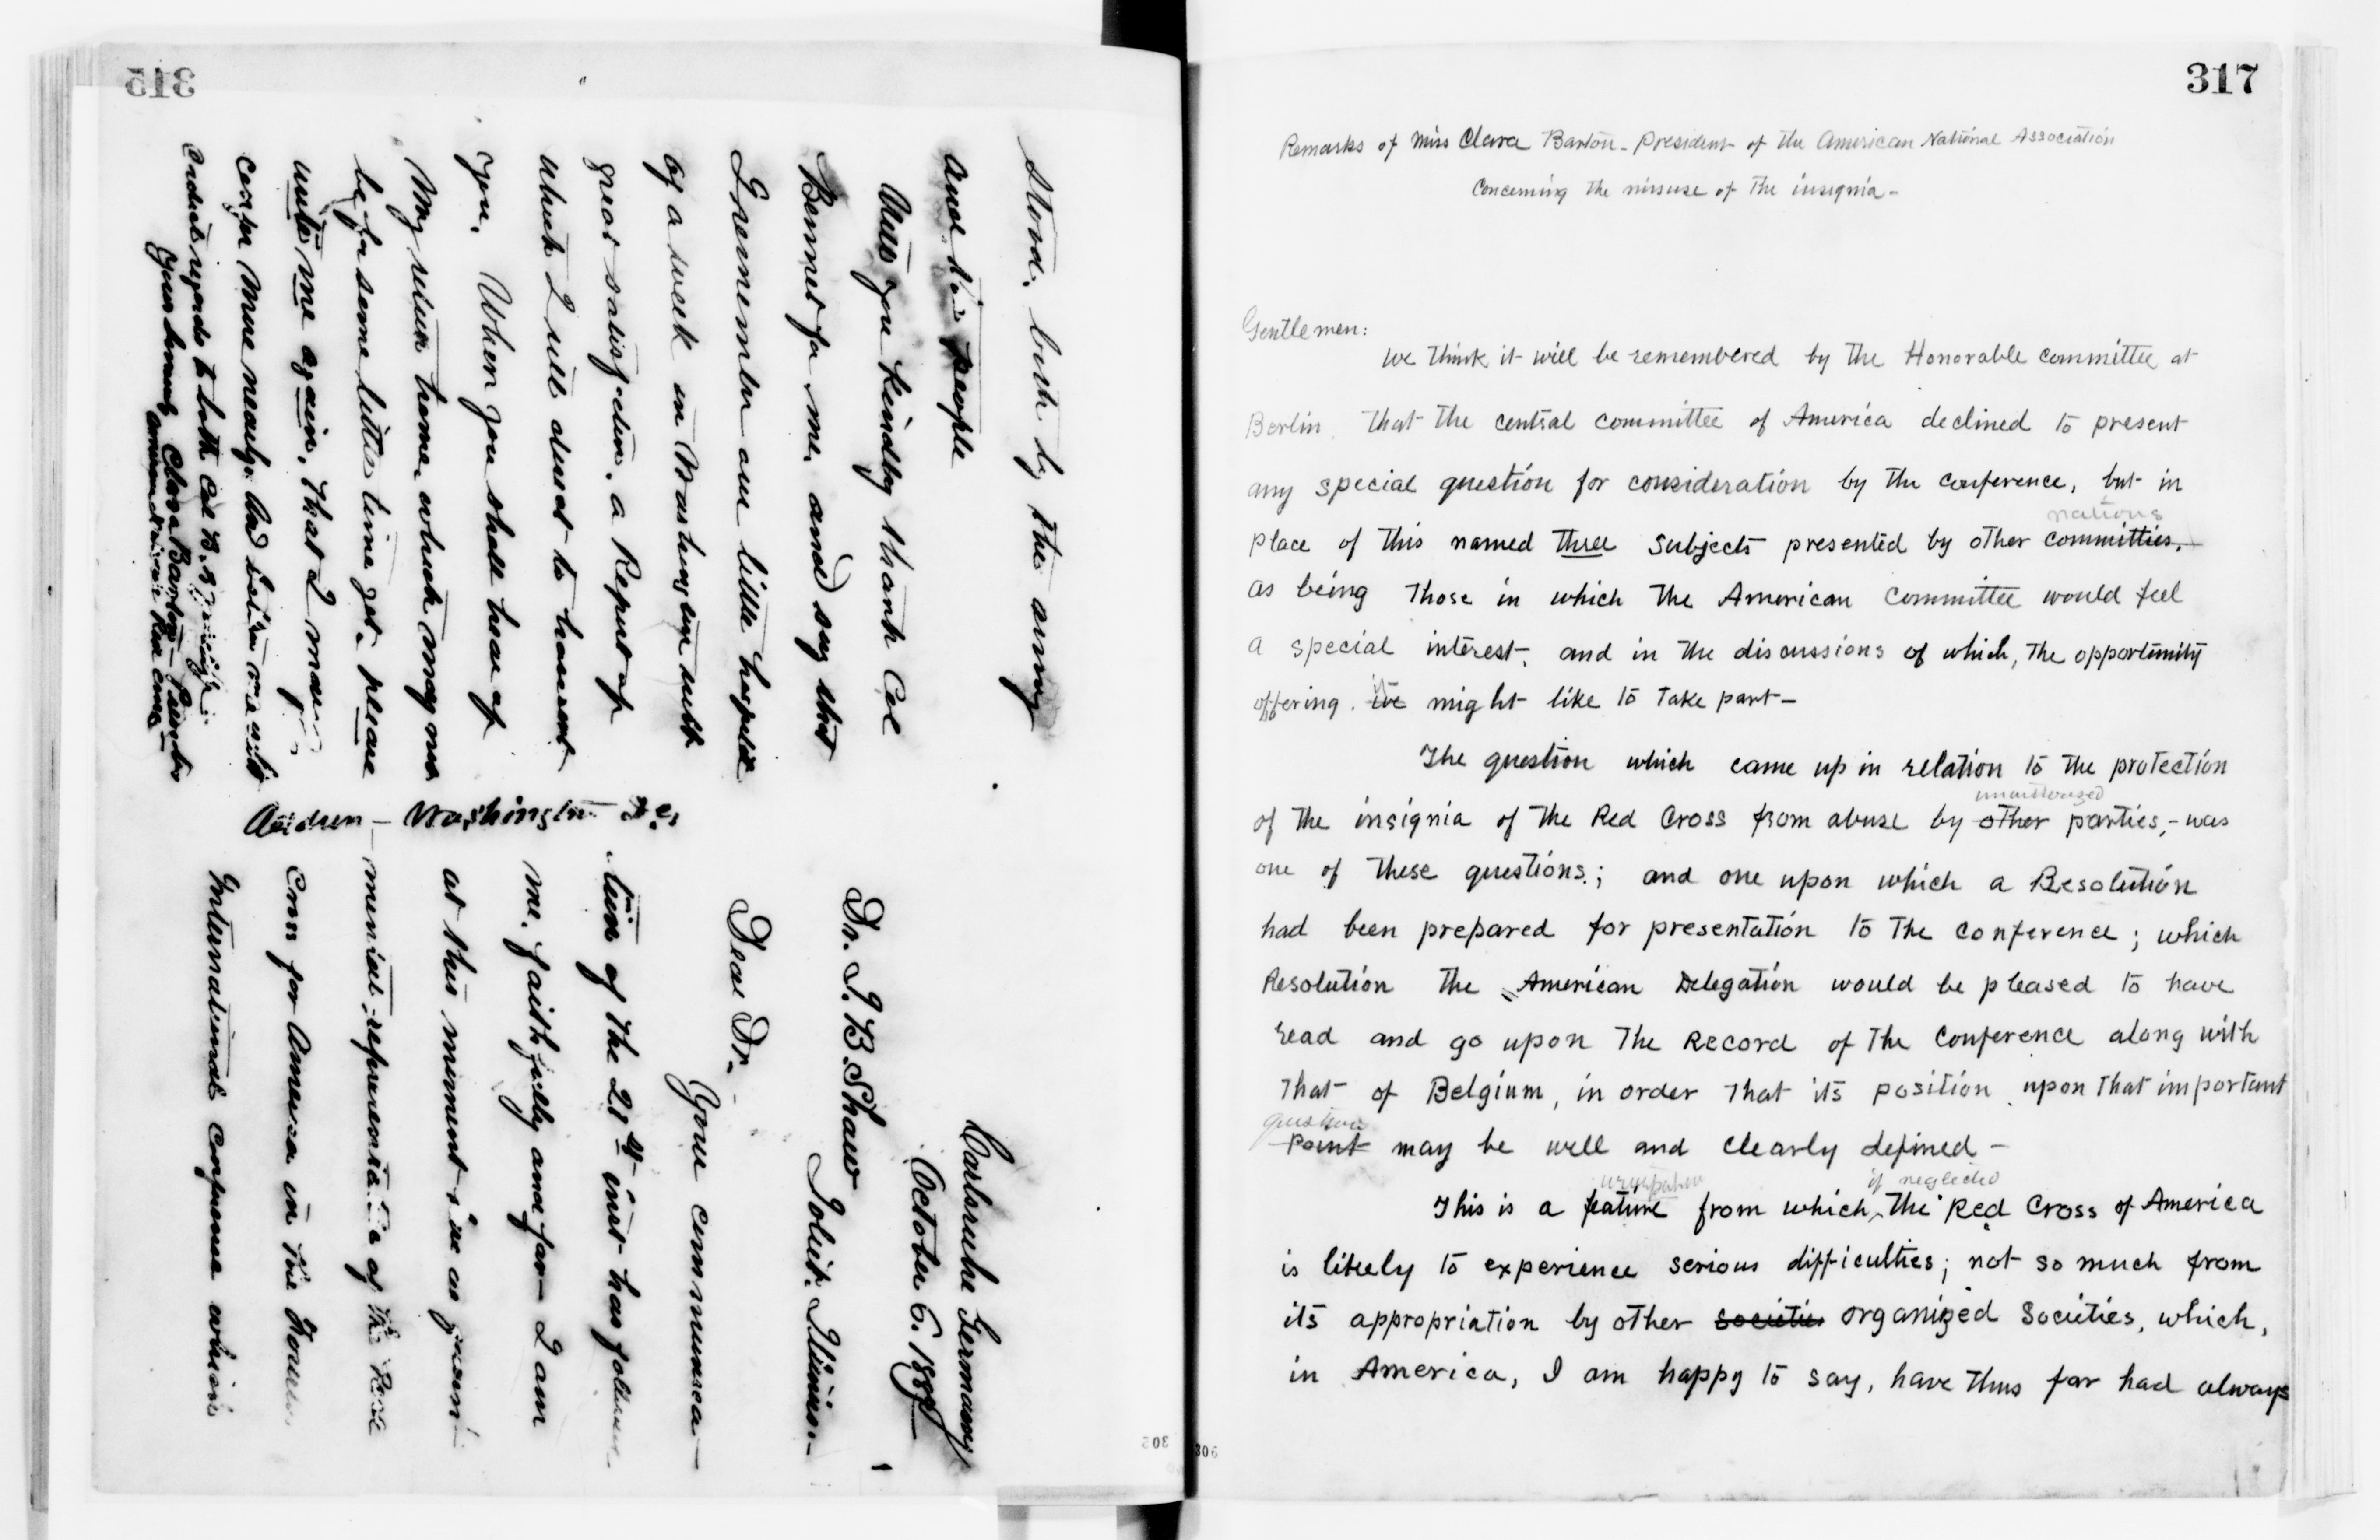 315
stood, both by the army
and the people
Will you kindly thank Col
Bennet for me, and say that
I remember our little hospital
of a week in Washington with
great satisfaction. a Report of
which I will direct to be sent
you. When you shall hear of
My return home, which may not
be for some little time yet, please
write me again, that I may
confer more nearly and
Cordial regards to both Col B. &
Yours sincerely Clara Barton – President
American National Red Cross
Address – Washington D.C.
Carlsruhe Germany
October 6. 1887
Dr. I. B Shaw
Joliet. Illinois.–
Dear Dr.
Your communica–
tion of the 21st inst has followed
me, faithfully and far – I am
at this moment in as
menial representative of the Red
Cross for America in the Fourth
International Conference which
305
306
317
Remarks of Miss Clara Barton – President of the American National Association
Concerning the misuse of the insignia –
Gentlemen:
We think it will be remembered by the Honorable committee at
Berlin, that the central committee of America declined to present
any special question for consideration by the conference, but in
nations
place of this named three subjects presented by other committies,
as being those in which the American Committee would feel
a special interest, and in the discussions of which, the opportunity
it
offering, we might like to take part –
The question which came up in relation to the protection
unauthorized
of the insignia of the Red Cross from abuse by other parties, – was
one of these questions; and one upon which a Resolution
had been prepared for presentation to the conference; which
Resolution the American Delegation would be pleased to have
read and go upon the Record of the Conference along with
that of Belgium, in order that its position upon that important
question
point may be well and clearly defined –
usurpation if neglected
This is a feature from which, the Red Cross of America
is likely to experience serious difficulties; not so much from
its appropriation by other societies organized societies, which,
in America, I am happy to say, have thus far had always